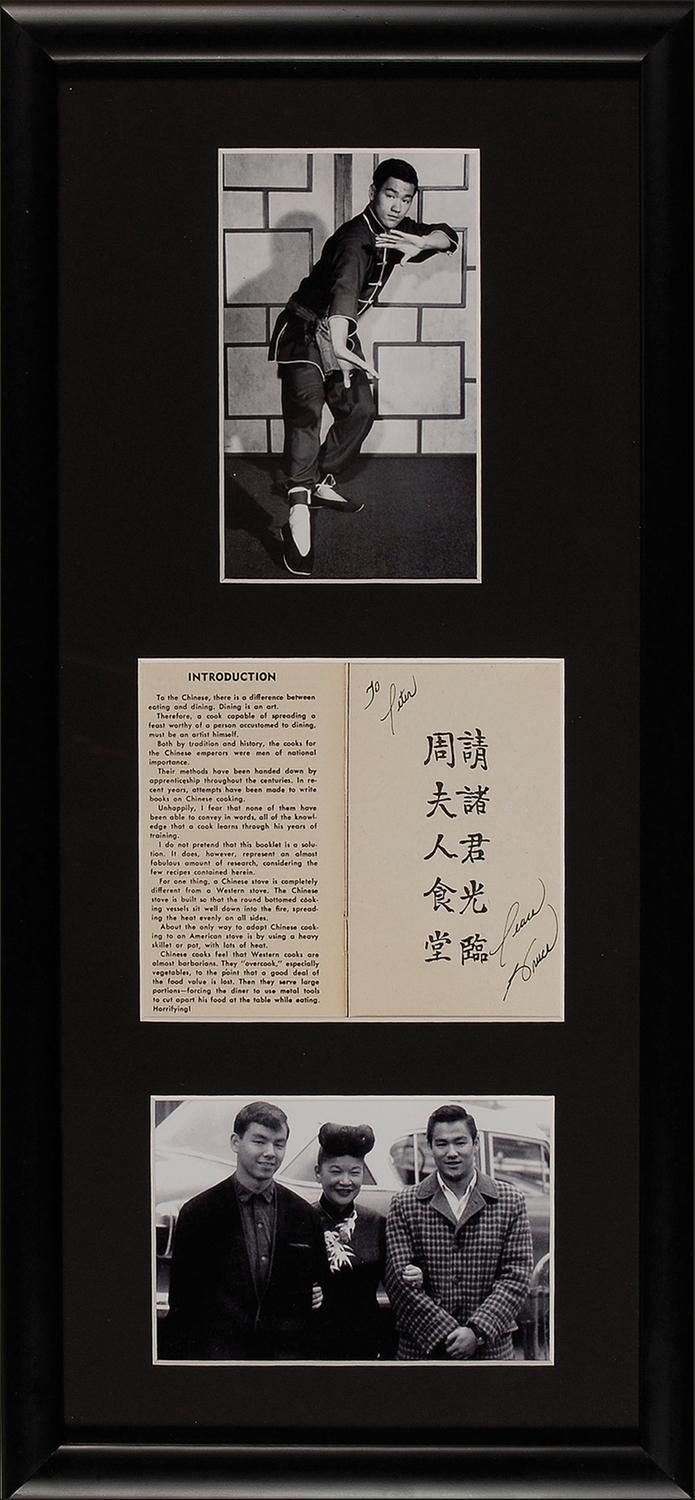 INTRODUCTION
To the Chinese, there is a difference between
eating and dining. Dining is an art.
Therefore, a cook capable of spreading a
feast worthy of a person accustomed to dining,
must be an artist himself.
Both by tradition and history, the cooks for
the Chinese emperors were men of national
importance.
Their methods have been handed down by
apprenticeship throughout the centuries. In re-
cent years, attempts have been made to write
books on Chinese cooking.
Unhappily, I fear that none of them have
been able to convey in words, all of the knowl-
edge that a cook learns through his years of
training.
I do not pretend that this booklet is a solu-
tion. It does, however, represent an almost
fabulous amount of research, considering the
few recipes contained herein.
For one thing, a Chinese stove is completely
different from a Western stove. The Chinese
stove is built so that the round bottomed cook-
ing vessels sit well down into the fire, spread-
ing the heat evenly on all sides.
About the only way to adapt Chinese cook-
ing to an American stove is by using a heavy
skillet or pot, with lots of heat.
Chinese cooks feel that Western cooks are
almost barbarians. They "overcook," especially
vegetables, to the point that a good deal of
the food value is lost. Then they serve large
portions—forcing the diner to use metal tools
to cut apart his food at the table while eating.
Horrifying!
To
Peter
請諸君光臨
周夫人食堂
Peace
Bruce